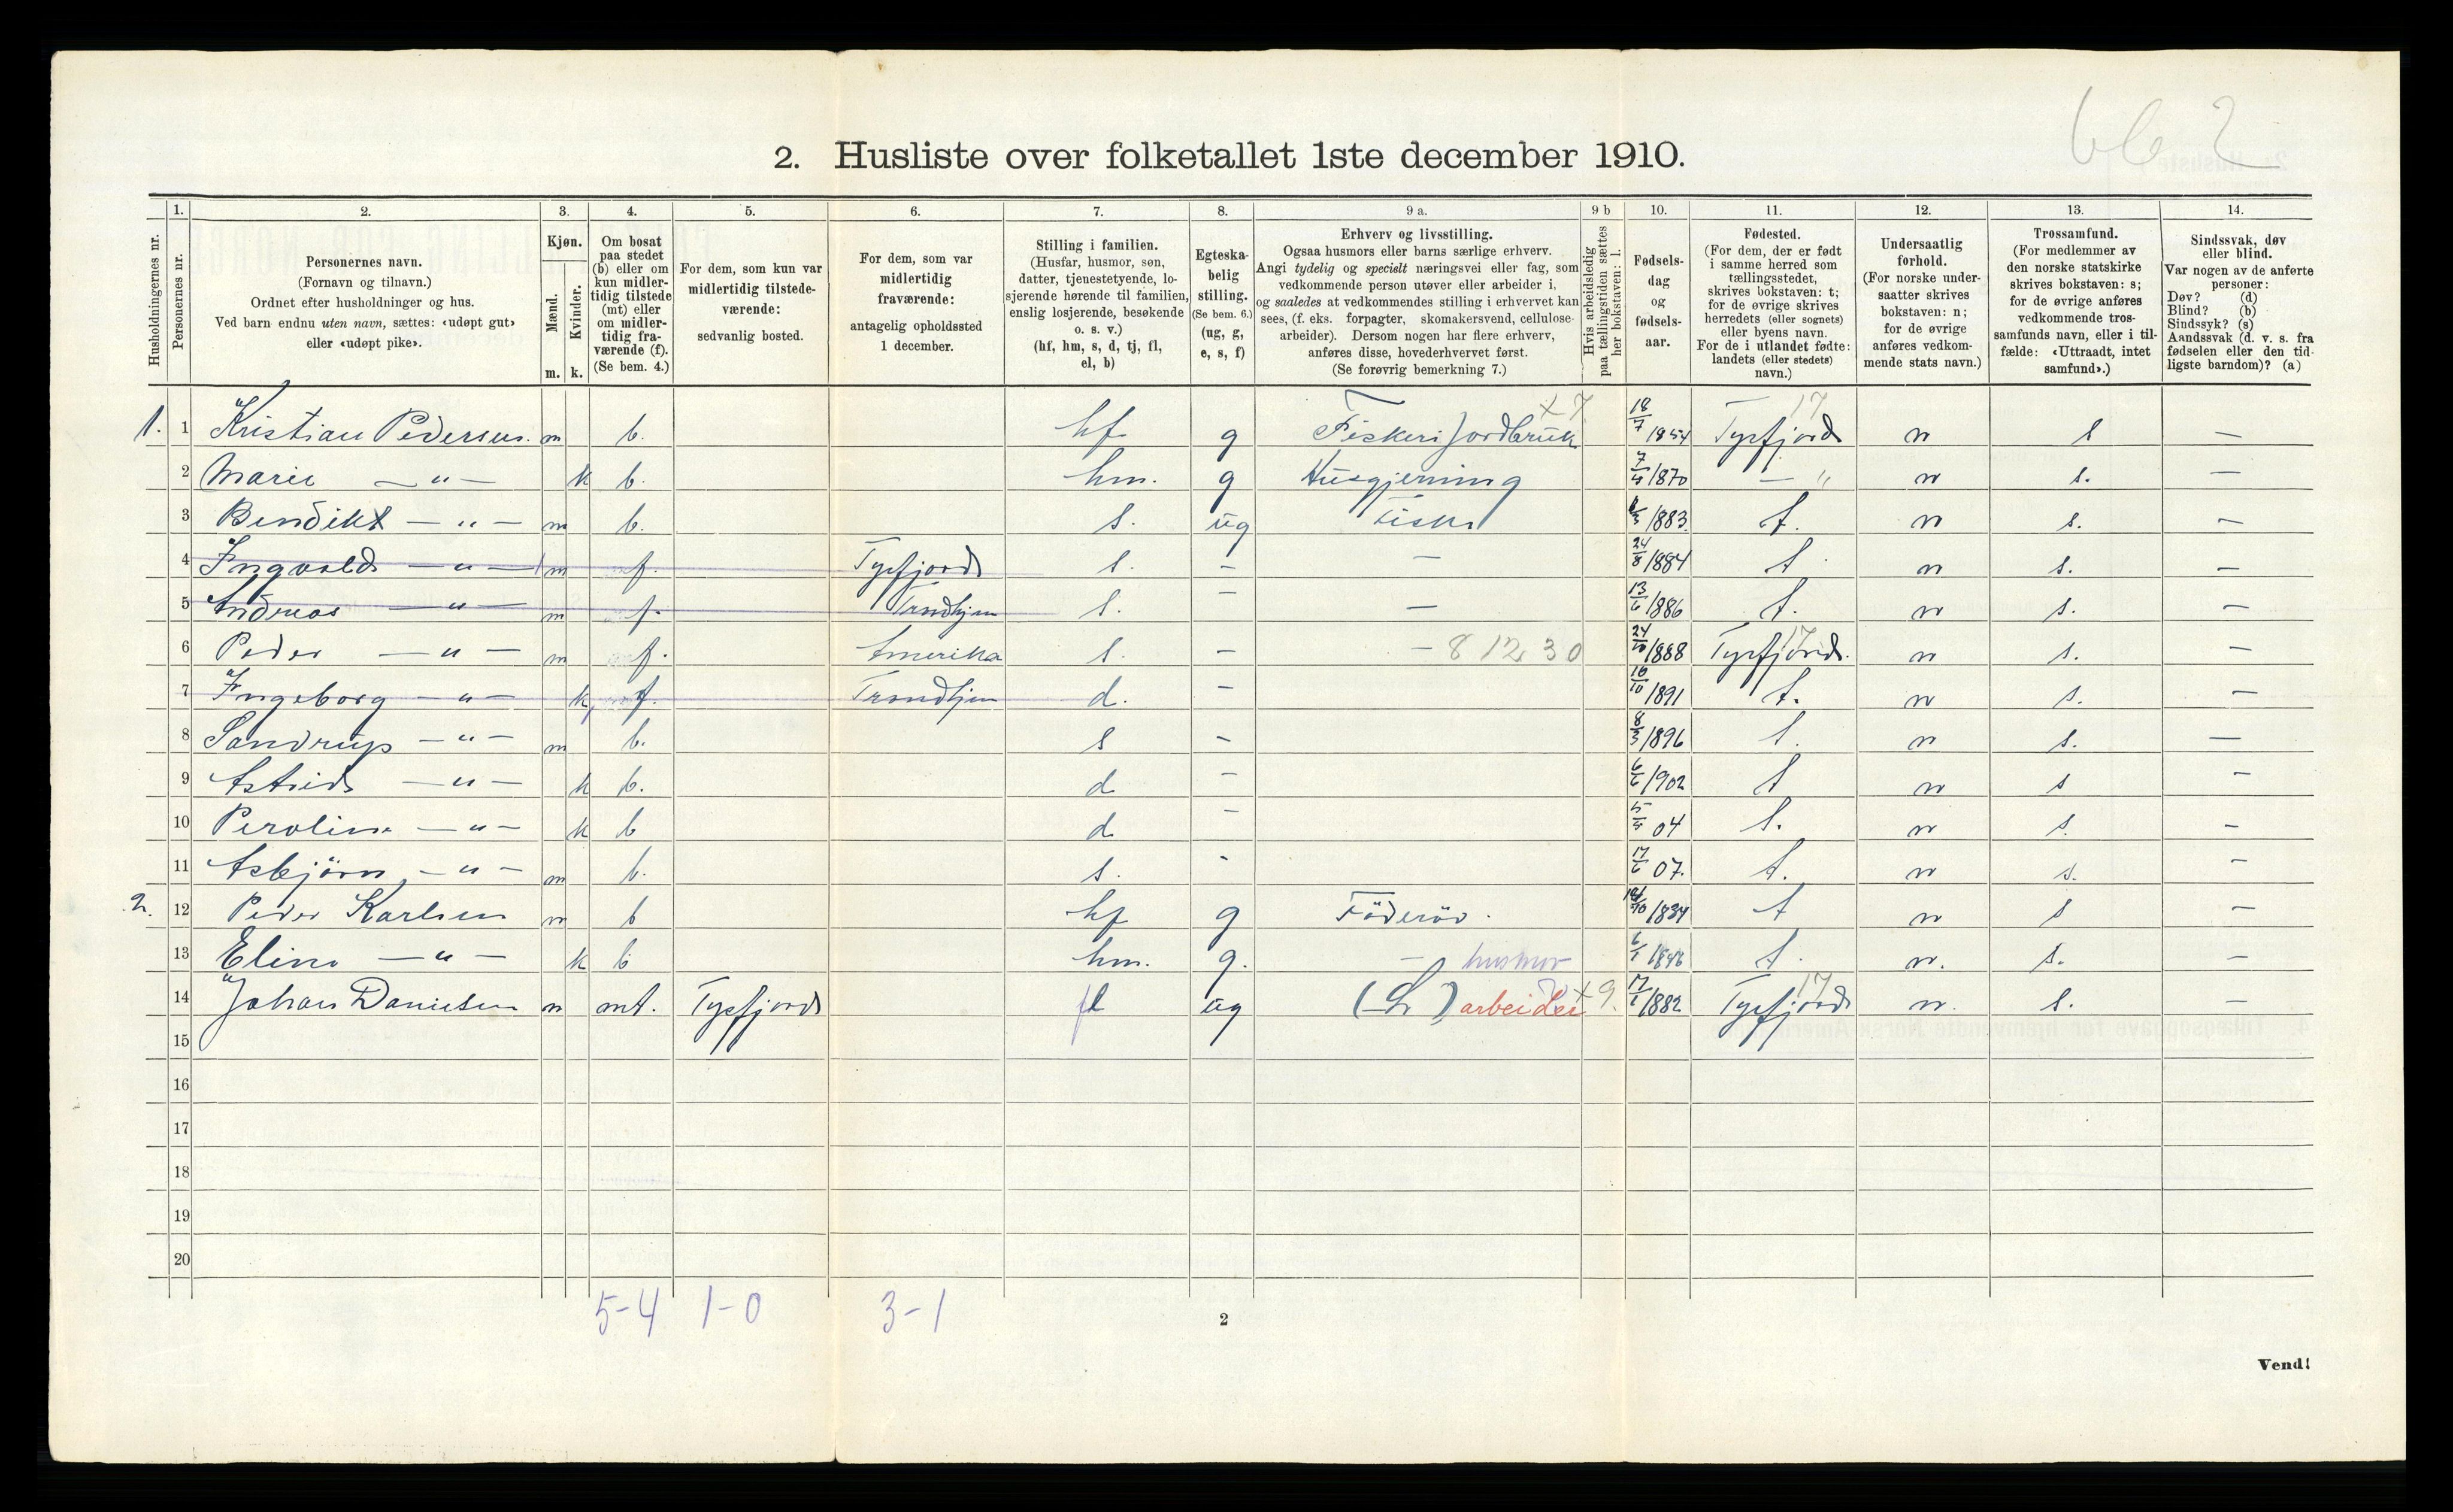 2. Husliste over folketallet 1ste december 1910.
Husholdningernes nr.
1.
Personernes nr.
2.
Personernes navn.
(Fornavn og tilnavn.)
Ordnet efter husholdninger og hus.
Ved barn endnu uten navn, sættes: «udøpt gut»
eller «udøpt pike».
3.
Kjøn.
Mænd.
Kvinder.
m. k.
4.
Om bosat
paa stedet
(b) eller om
kun midler-
tidig tilstede
(mt) eller
om midler-
tidig fra-
værende (f).
(Se bem. 4.)
5.
For dem, som kun var
midlertidig tilstede-
værende:
sedvanlig bosted.
6.
For dem, som var
midlertidig
fraværende:
antagelig opholdssted
1 december.
7.
Stilling i familien.
(Husfar, husmor, søn,
datter, tjenestetyende, lo-
sjerende hørende til familien,
enslig losjerende, besøkende
o. s. v.)
(hf, hm, s, d, tj, fl,
el, b)
8.
Egteska-
belig
stilling.
(Se bem. 6.)
(ug, g,
e, s, f)
9 a.
Erhverv og livsstilling.
Ogsaa husmors eller barns særlige erhverv.
Angi tydelig og specielt næringsvei eller fag, som
vedkommende person utøver eller arbeider i,
og saaledes at vedkommendes stilling i erhvervet kan
sees, (f. eks. forpagter, skomakersvend, cellulose-
arbeider). Dersom nogen har flere erhverv,
anføres disse, hovederhvervet først.
(Se forøvrig bemerkning 7.)
9 b
Hvis arbeidsledig
paa tællingstiden sættes
her bokstaven: l.
10.
Fødsels-
dag
og
fødsels-
aar.
11.
Fødested.
(For dem, der er født
i samme herred som
tællingsstedet,
skrives bokstaven: t;
for de øvrige skrives
herredets (eller sognets)
eller byens navn.
For de i utlandet fødte:
landets (eller stedets)
navn.)
12.
Undersaatlig
forhold.
(For norske under-
saatter skrives
bokstaven: n;
for de øvrige
anføres vedkom-
mende stats navn.)
13.
Trossamfund.
(For medlemmer av
den norske statskirke
skrives bokstaven: s;
for de øvrige anføres
vedkommende tros-
samfunds navn, eller i til-
fælde: «Uttraadt, intet
samfund».)
14.
Sindssvak, døv
eller blind.
Var nogen av de anførte
personer:
Døv? (d)
Blind? (b)
Sindssyk? (s)
Aandssvak (d. v. s. fra
fødselen eller den tid-
ligste barndom)? (a)
1. 1 Kristian Pedersen m b. hf g Fiskeri Jordbruk x 7 18/7 1854 Tysfjord 17 n s —
2 Marie — " — k b. hm. g Husgjerning 1870 — " n s. —
3 Bendikt — " — m b. s. ug Fisker 1883 t. n s. —
4 Ingvald — " — m f. Tysfjord s. — — 24/8 1884 t n s. —
5 Andreas — " — m f. Trondhjem s. — — 13/6 1886 t. n s. —
6 Peder — " — m f. Amerika s. — — 8 12 30 24/10 1888 Tysfjord. 17 n s. —
7 Ingeborg — " — k f. Trondhjem d. — 1891 t. n s. —
8 Sandrup — " — m b. s — 8/3 1896 t. n s. —
9 Astrid — " — k b. d — 6/6 1902 t n s —
10 Perolina — " — k b d — 04 t. n s. —
11 Asbjörn — " — m b. s. - 17/6 07. t. n s. —
2. 12 Peder Karlsen m b hf g Föderåd. 1834 t n s —
13 Elina — " — k b hm. g. — husmor t. n. s. —
14 Johan Danielsen m mt. Tysfjord fl ug arbeider x 9. 1882 Tysfjord 17 n. s. —
15
16
17
18
19
20
5-4 1-0 3-1
2
Vend!